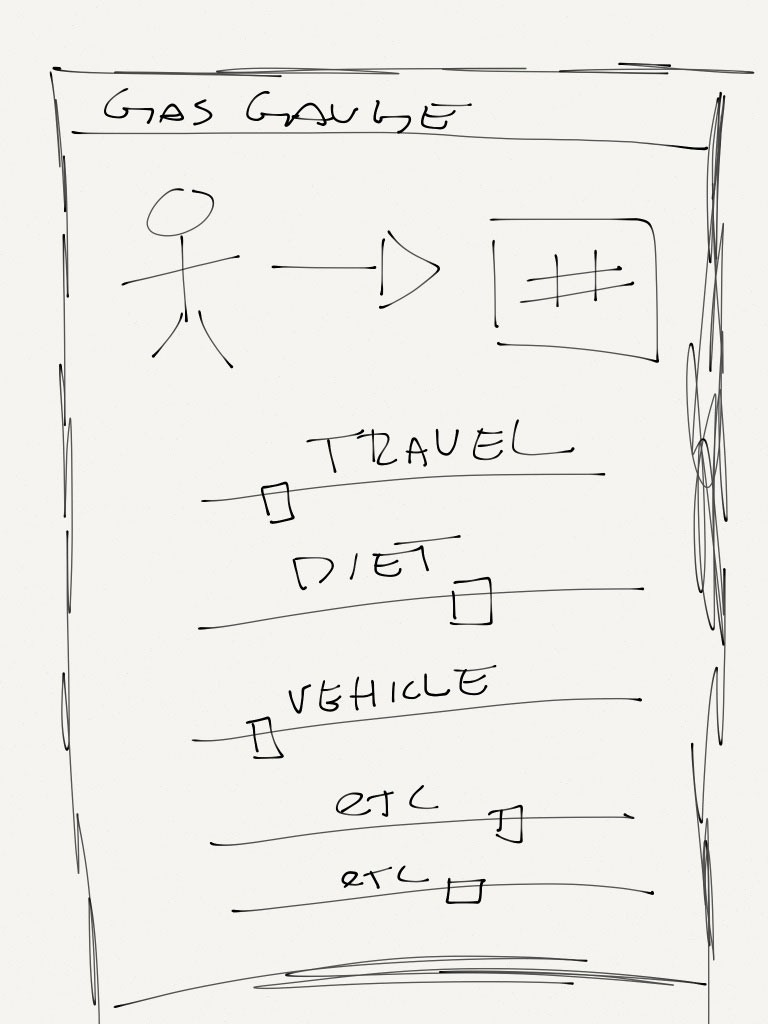 GAS GAUGE
#
TRAVEL
DIET
VEHICLE
etc
etc